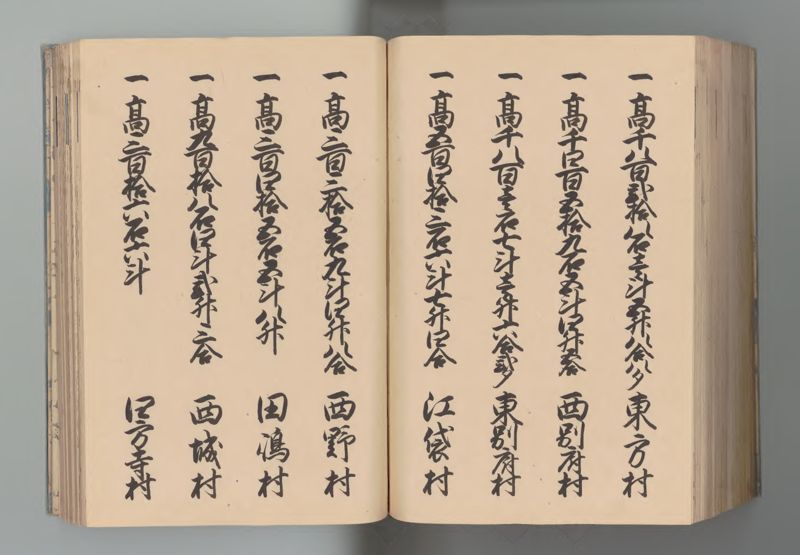 一 高千八百弐拾八石壱斗五升八合八夕 東方村
一 高千四百五拾九石五斗四升五合 西別府村
一 高千八百壱石七斗壱升六合弐夕 東別府村
一 高五百四拾三石六斗七升四合 江袋村
一 高三百二拾五石九斗四升八合 西野村
一 高三百四拾五石五斗八升 田嶋村
一 高九百拾八石四斗弐升三合 西城村
一 高三百拾六石六斗 四方寺村